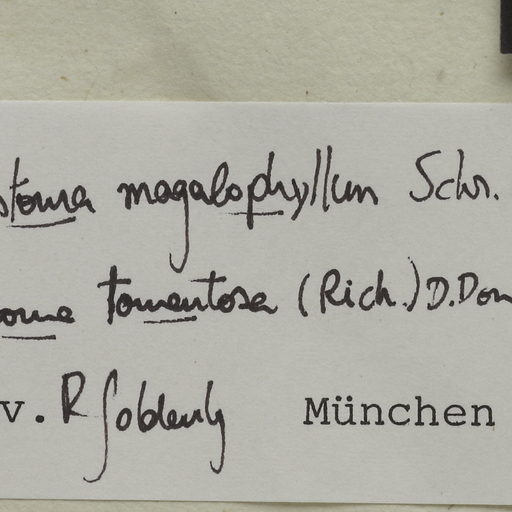 stoma magalophyllum Schr.
ome tomentosa (Rich.) D.Don
v. R Goldenberg München